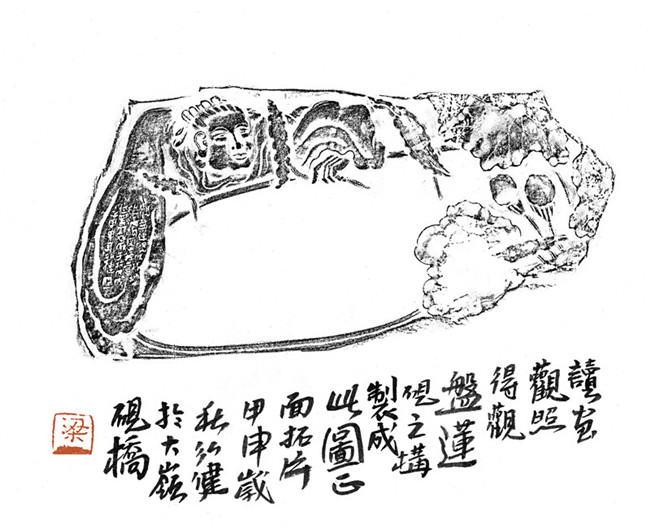 讀画
觀照
得觀
盤蓮
硯之構
製成
此圖正
面拓片
甲申歲
秋行健
於大嶺
硯橋
梁